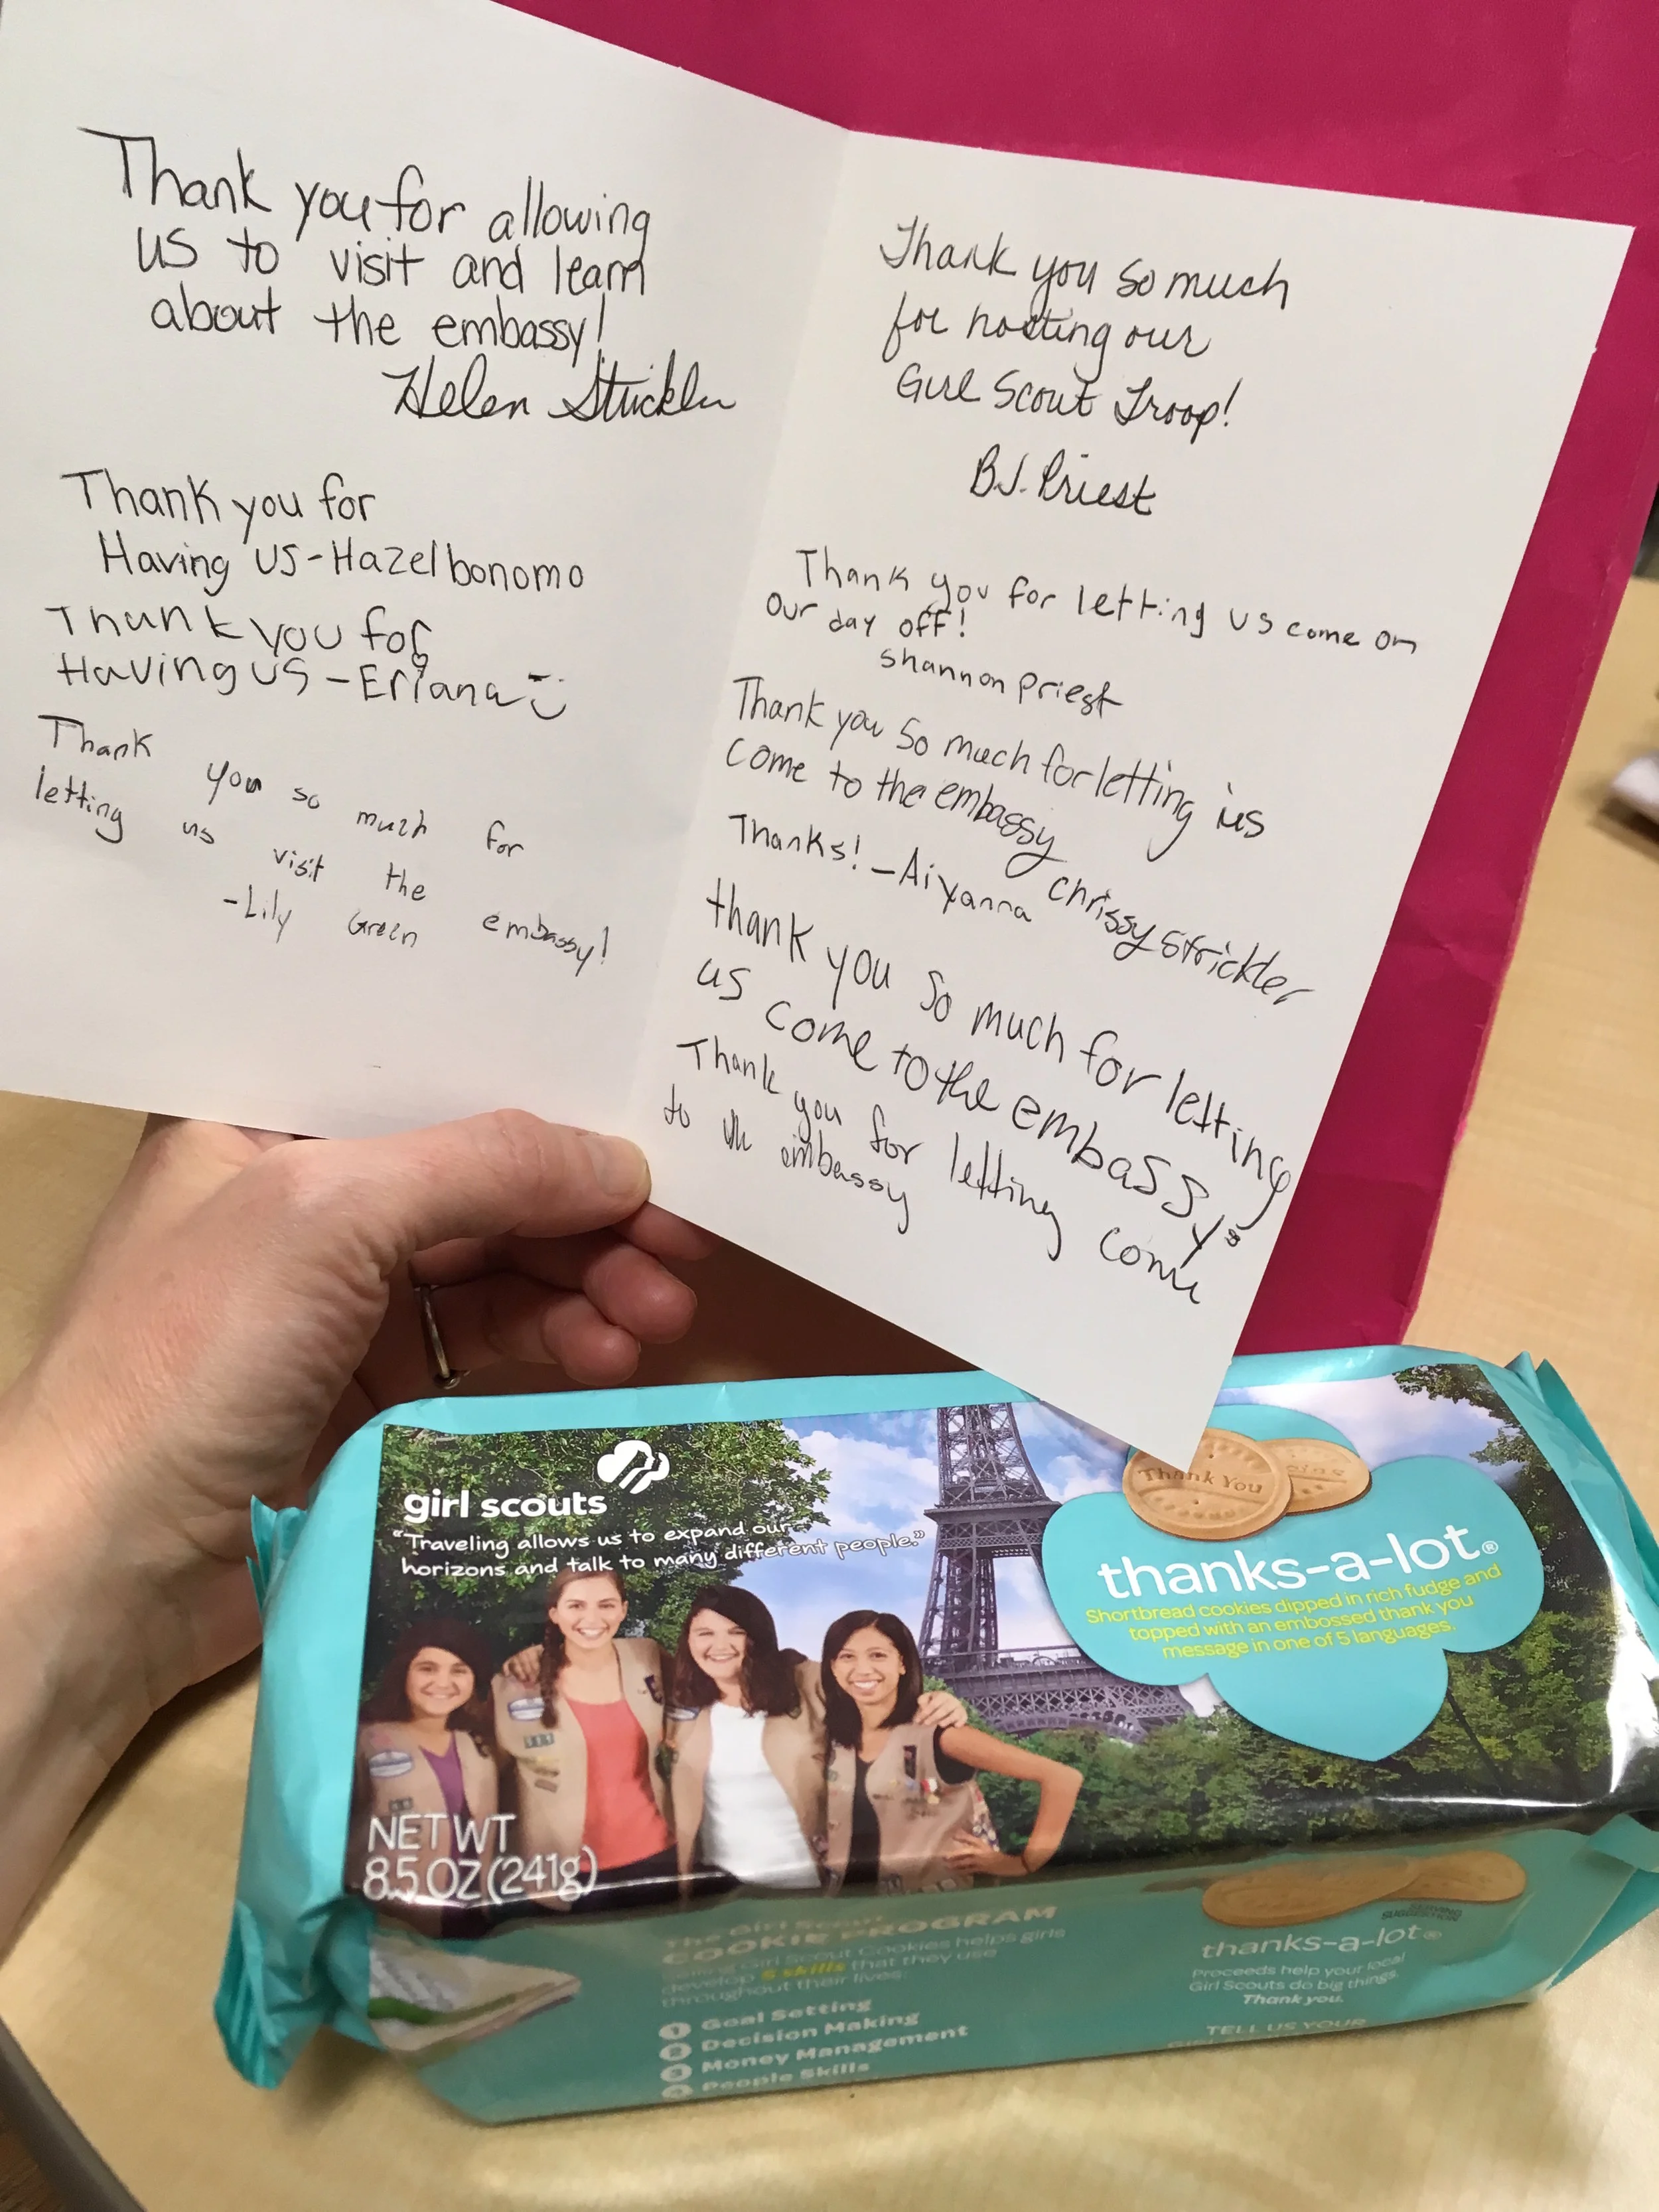 Thank you for allowing
us to visit and learn
about the embassy!
Helen Strickler
Thank you for
Having us-Hazel bonomo
Thank you for
Having us-Eriana
Thank you so much for
letting us visit the embassy!
-Lily Green
Thank you so much
for hosting our
Girl Scout Troop!
B.J. Priest
Thank you for letting us come on
our day off!
Shannon Priest
Thank you so much for letting us
come to the embassy chrissy strickler
Thanks! -Aiyanna
thank you so much for letting
us come to the embassy
Thank you for letting come
to the embassy
girl scouts
"Traveling allows us to expand our
horizons and talk to many different people."
Thank You
thanks-a-lot®
Shortbread cookies dipped in rich fudge and
topped with an embossed thank you
message in one of 5 languages.
NET WT
8.5 OZ (241g)
The Girl Scout
COOKIE PROGRAM
Selling Girl Scout Cookies helps girls
develop 5 skills that they use
throughout their lives:
1 Goal Setting
2 Decision Making
3 Money Management
4 People Skills
SERVING
SUGGESTION
thanks-a-lot®
Proceeds help your local
Girl Scouts do big things.
Thank you.
TELL US YOUR